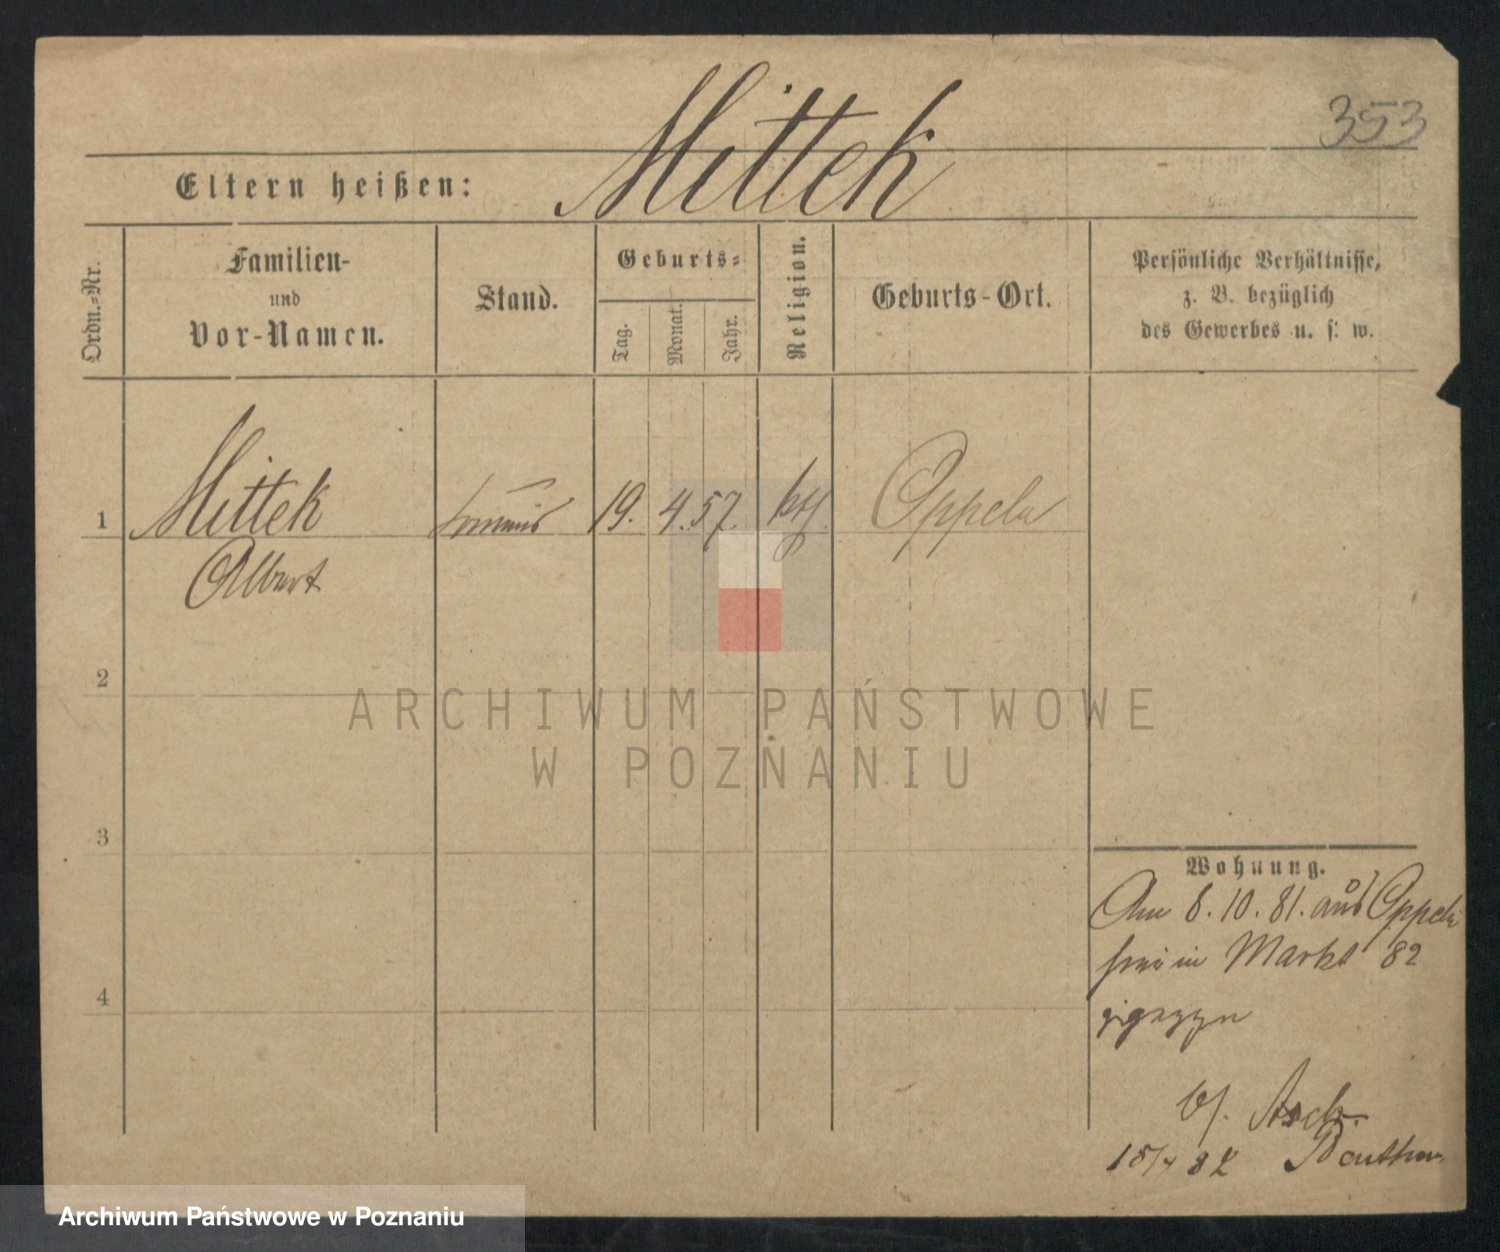 353
Eltern heißen: Mittek
Ordn.-Nr.
Familien-
und
Vor-Namen.
Stand.
Geburts-
Tag.
Monat.
Jahr.
Religion.
Geburts-Ort.
Persönliche Verhältnisse,
z. B. bezüglich
des Gewerbes u. s. w.
1 Mittek Commis 19. 4. 57. kth. Oppeln
Albert
2
3
4
ARCHIWUM PAŃSTWOWE
W POZNANIU
Wohnung.
Am 8. 10. 81. aus Oppeln
Markt 82
gezogen
Beuthen
Archiwum Państwowe w Poznaniu